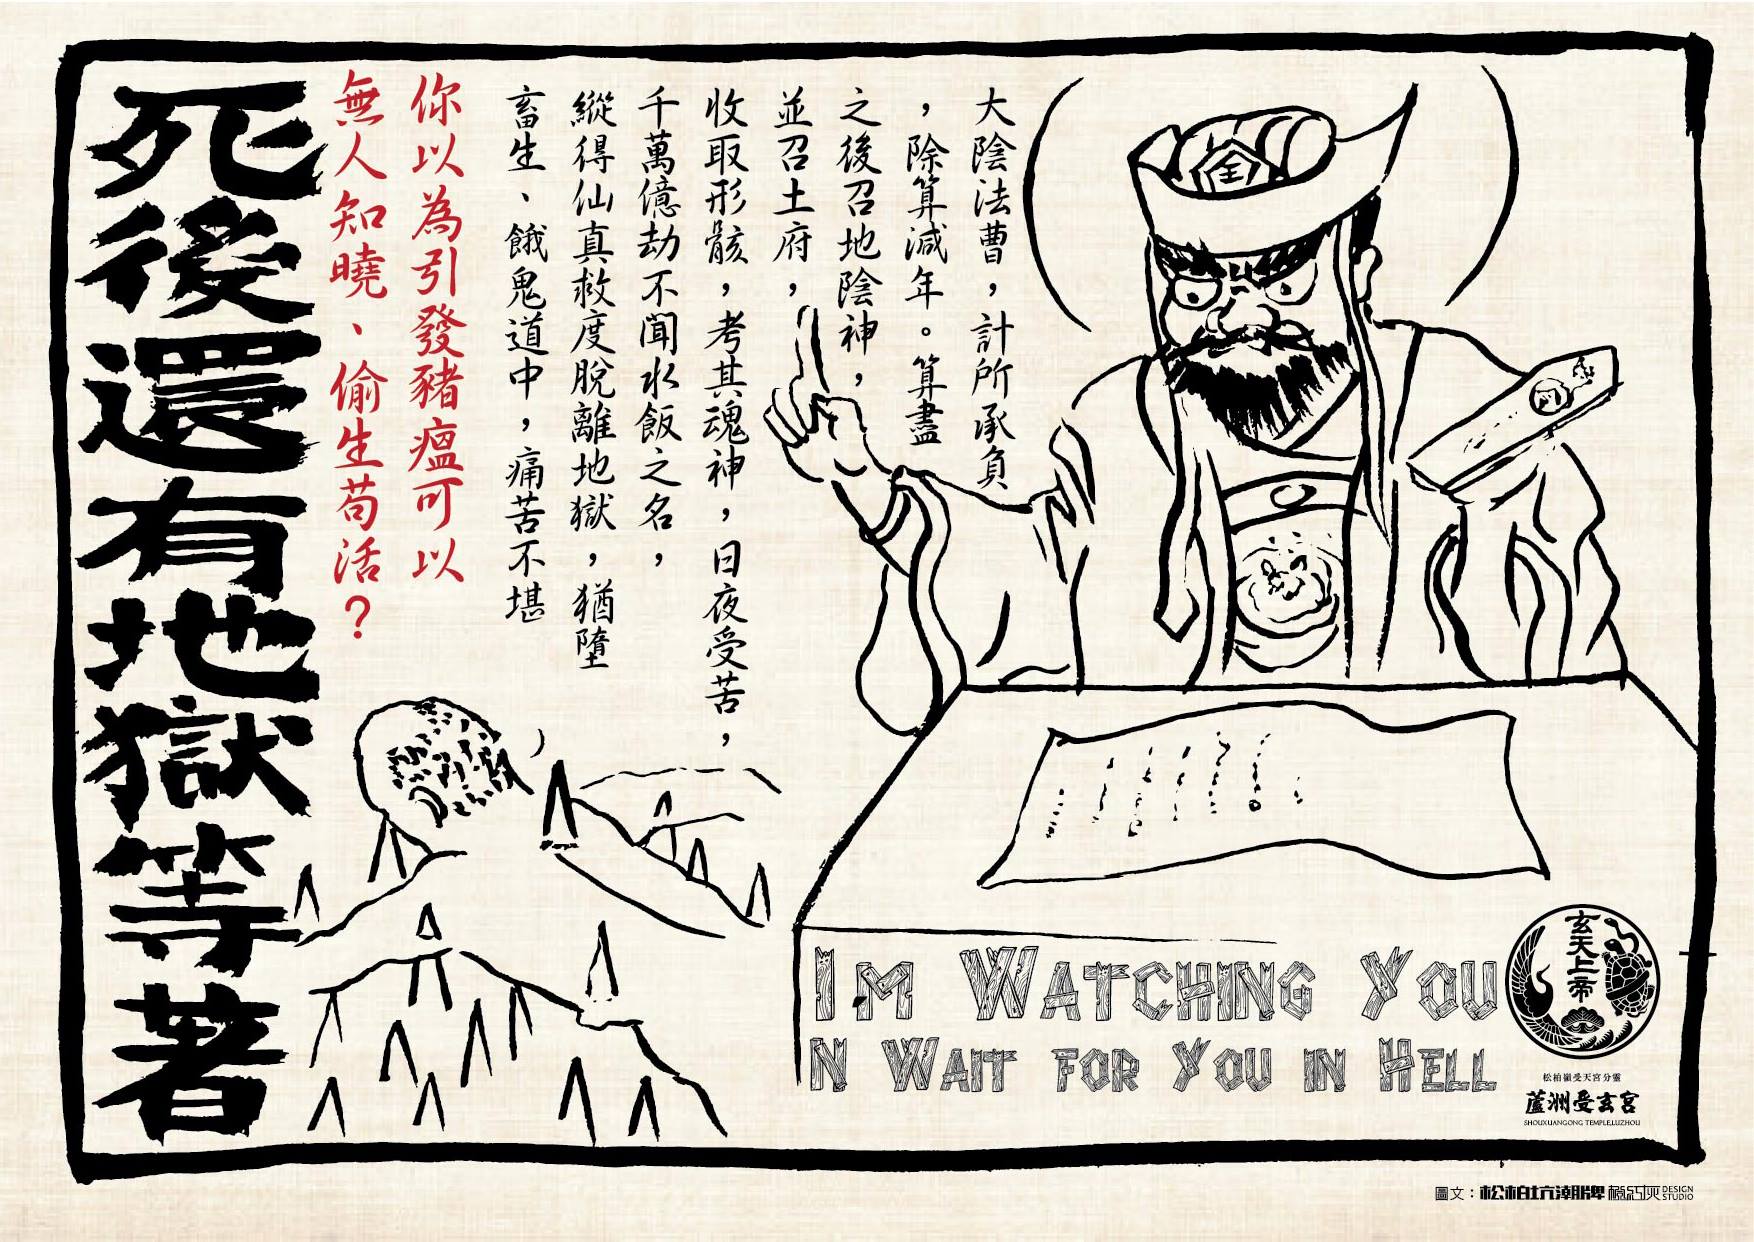 大陰法曹，計所承負
，除算減年。算盡
之後召地陰神，
並召土府，
收取形骸，考其魂神，日夜受苦，
千萬億劫不聞水飯之名，
縱得仙真救度脫離地獄，猶墮
畜生、餓鬼道中，痛苦不堪
你以為引發豬瘟可以
無人知曉、偷生苟活？
死後還有地獄等著
全
I'M WATCHING YOU
N WAIT FOR YOU IN HELL
玄天上帝
松柏嶺受天宮分靈
蘆洲受玄宮
SHOUXUANGONG TEMPLE,LUZHOU
圖文：松柏坑潮牌 極巧灰 DESIGN STUDIO